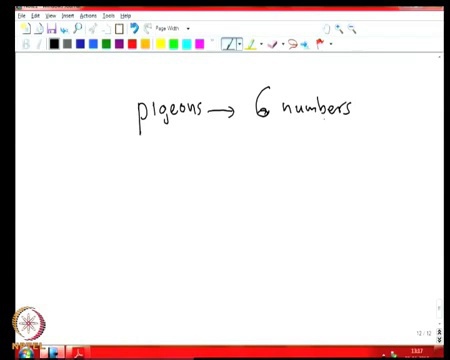 File Edit View Insert Actions Tools Help
Page Width
pigeons → 6 numbers
12 / 12
NPTEL
13:17